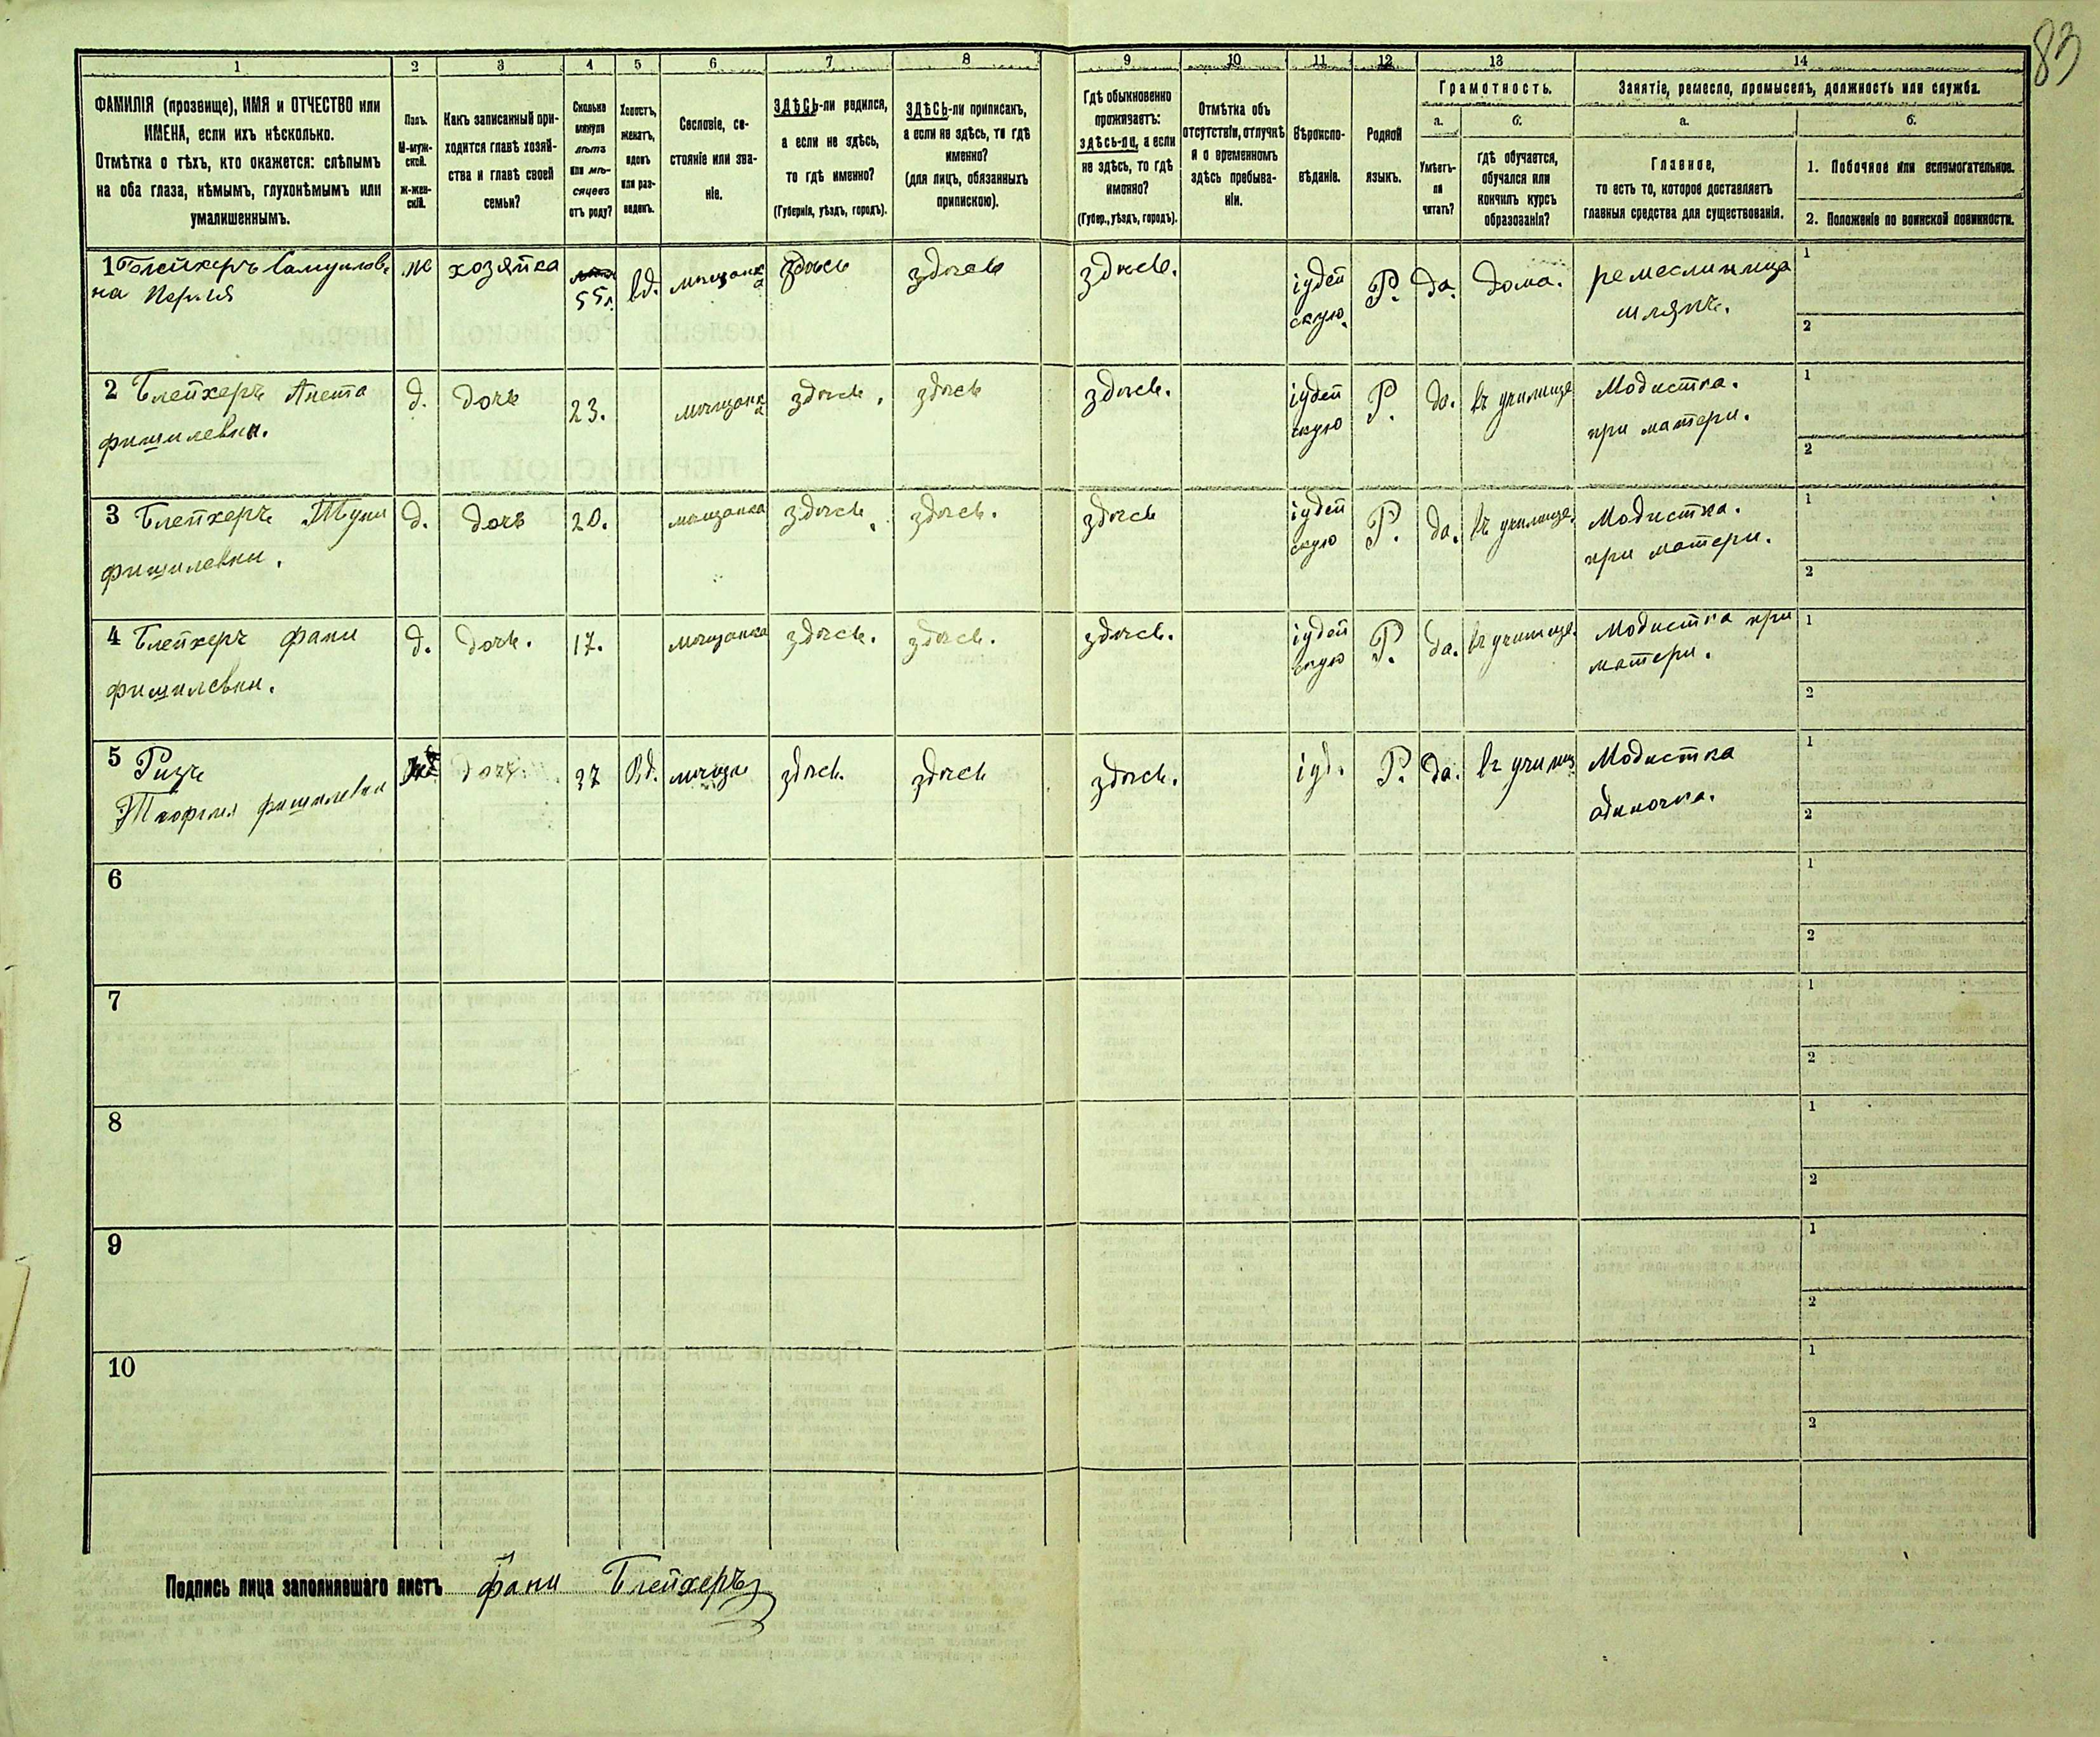 83
1 2 3 4 5 6 7 8 9 10 11 12 13 14
ФАМИЛІЯ (прозвище), ИМЯ и ОТЧЕСТВО или
ИМЕНА, если ихъ нѣсколько.
Отмѣтка о тѣхъ, кто окажется: слѣпымъ
на оба глаза, нѣмымъ, глухонѣмымъ или
умалишеннымъ.
Полъ.
М-муж-
ской.
Ж-жен-
скій.
Какъ записанный при-
ходится главѣ хозяй-
ства и главѣ своей
семьи?
Сколько
минуло
лѣтъ
или мѣ-
сяцевъ
отъ роду?
Холостъ,
женатъ,
вдовъ
или раз-
веденъ.
Сословіе, со-
стояніе или зва-
ніе.
ЗДѢСЬ-ли родился,
а если не здѣсь,
то гдѣ именно?
(Губернія, уѣздъ, городъ).
ЗДѢСЬ-ли приписанъ,
а если не здѣсь, то гдѣ
именно?
(для лицъ, обязанныхъ
припискою).
Гдѣ обыкновенно
проживаетъ:
здѣсь-ли, а если
не здѣсь, то гдѣ
именно?
(Губер., уѣздъ, городъ).
Отмѣтка объ
отсутствіи, отлучкѣ
и о временномъ
здѣсь пребыва-
ніи.
Вѣроиспо-
вѣданіе.
Родной
языкъ.
Грамотность.
а.
Умѣетъ-
ли
читать?
б.
гдѣ обучается,
обучался или
кончилъ курсъ
образованія?
Занятіе, ремесло, промыселъ, должность или служба.
а.
Главное,
то есть то, которое доставляетъ
главныя средства для существованія.
б.
1. Побочное или вспомогательное.
2. Положеніе по воинской повинности.
1 Блейхеръ Самуилов- ж хозяйка 55 л. вд. мѣщанка здѣсь здѣсь здѣсь. іудей Р. да. дома. ремеслиница 1
на скую. шляпъ. 2
2 Блейхеръ Анета д. дочь 23. мѣщанка здѣсь, здѣсь здѣсь. іудей Р. да. въ училище Модистка. 1
фишилевна. скую при матери. 2
3 Блейхеръ д. дочь 20. мѣщанка здѣсь. здѣсь. здѣсь іудей Р. да. въ училище. Модистка. 1
фишилевни. скую при матери. 2
4 Блейхеръ фани д. дочь. 17. мѣщанка здѣсь. здѣсь. здѣсь. іудей Р. да. въ училище. Модистка при 1
фишилевни. скую матери. 2
5 дочь. 37 Вд. здѣсь. здѣсь здѣсь. іуд. Р. да. въ училищ Модистка 1
фишилевни одиночка. 2
6 1
2
7 1
2
8 1
2
9 1
2
10 1
2
Подпись лица заполнявшаго листъ фани Блейхеръ